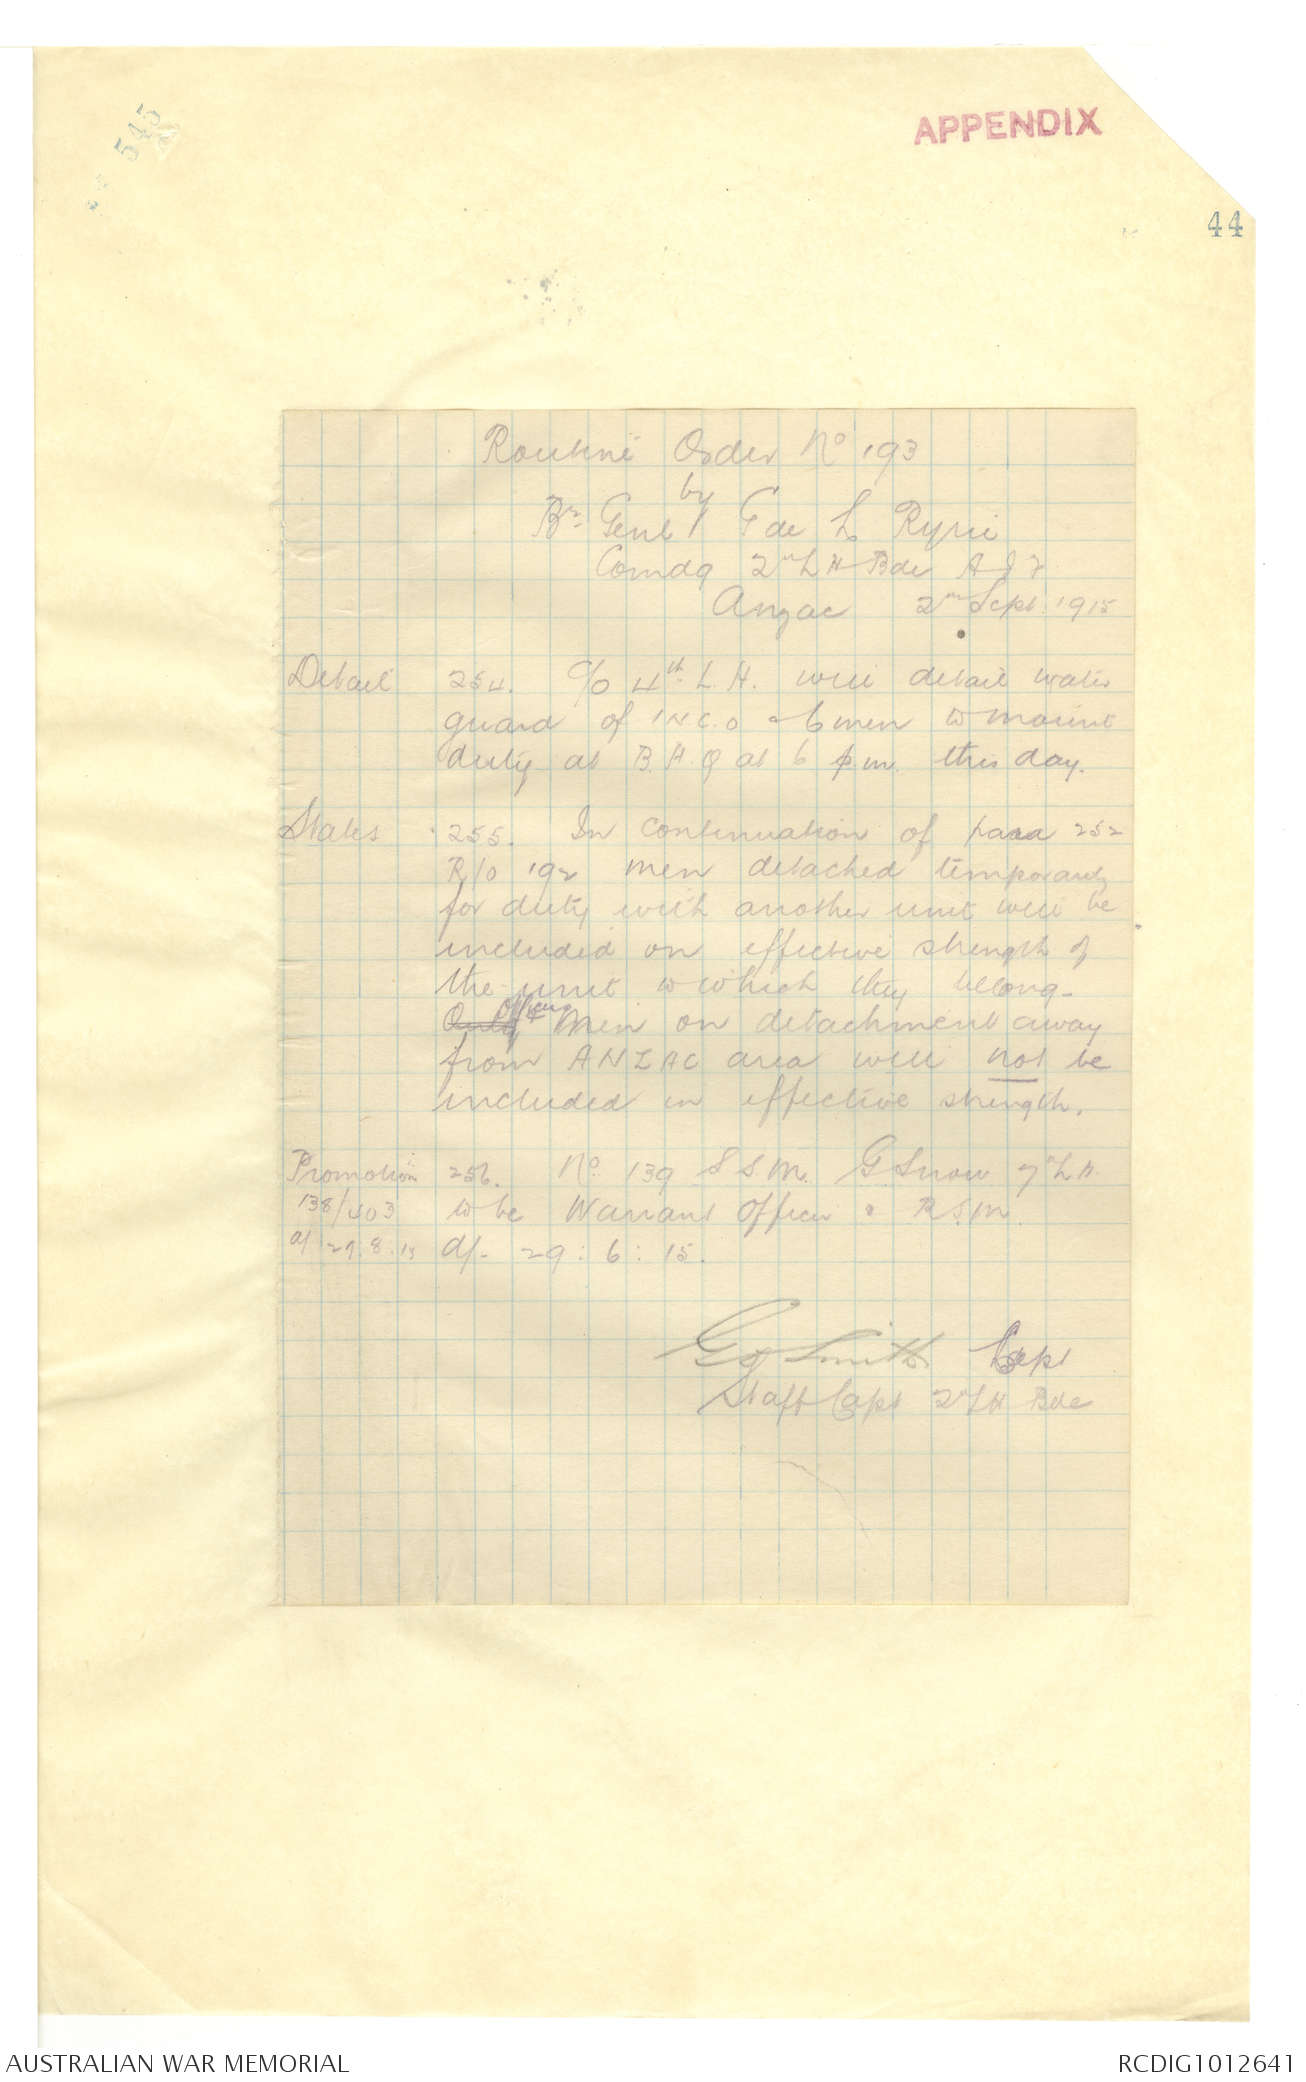 545
APPENDIX
44
Routine Order No 193
by
Br. Genl G de L Ryrie
Comdg 2nd L H Bde A I F
Anzac 2nd Sept. 1915
Detail 254. C/O 4th L. H. will detail water
guard of 1 N C. O & 6 men to mount
duty at B. H. Q at 6 p.m. this day.
States 255. In continuation of para 252
R/O 192 men detached temporarily
for duty with another unit will be
included on effective strength of
the unit to which they belong.
Only Officers & Men on detachment away
from ANZAC area will not be
included in effective strength.
Promotion 256. No. 139 S S M. G. Snow 7th L H.
138/403 to be Warrant Officer & R.S.M
d/ 29.8.15 d/- 29:6:15.
Smith Capt
Staff Capt 2nd L H Bde
AUSTRALIAN WAR MEMORIAL
RCDIG1012641